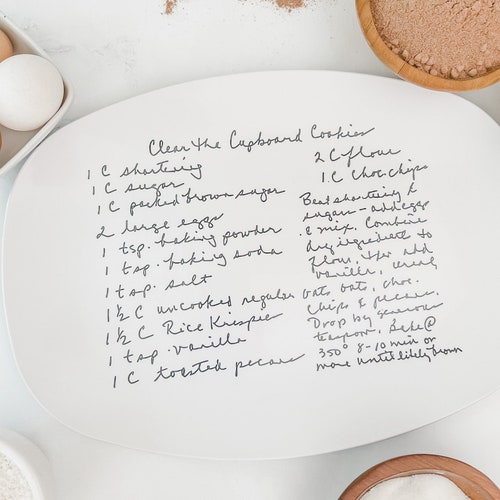 Clear the Cupboard Cookies
1 C shortening
1 C sugar
1 C packed brown sugar
2 large eggs
1 tsp. baking powder
1 tsp. baking soda
1 tsp. salt
1 1/2 C uncooked regular oats
1 1/2 C Rice Krispie
1 tsp. vanilla
1 C toasted pecans
2 C flour
1 C choc. chips
Beat shortening &
sugars - add eggs
& mix. Combine
dry ingredients to
flour, then add
vanilla, cereal
oats, choc.
chips & pecans.
Drop by generous
teaspoon. Bake @
350° 8-10 min or
more until likely brown